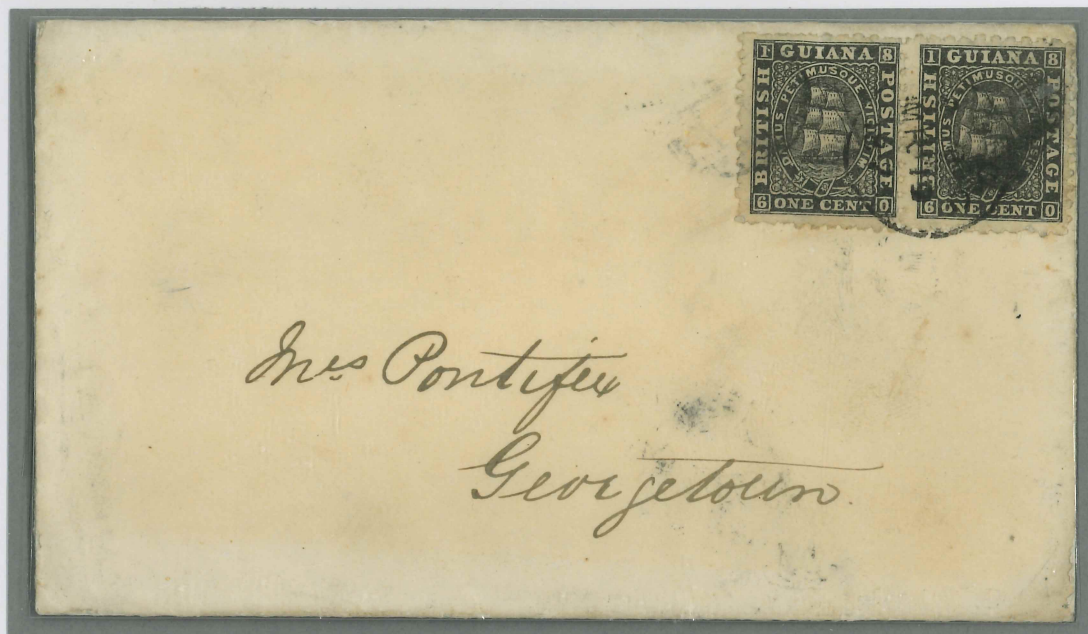 1 GUIANA 8
BRITISH
POSTAGE
DAMUS PETIMUSQUE VICISSIM
6 ONE CENT 0
1 GUIANA 8
BRITISH
POSTAGE
DAMUS PETIMUSQUE
6 ONE CENT 0
Mrs Pontifex
Georgetown